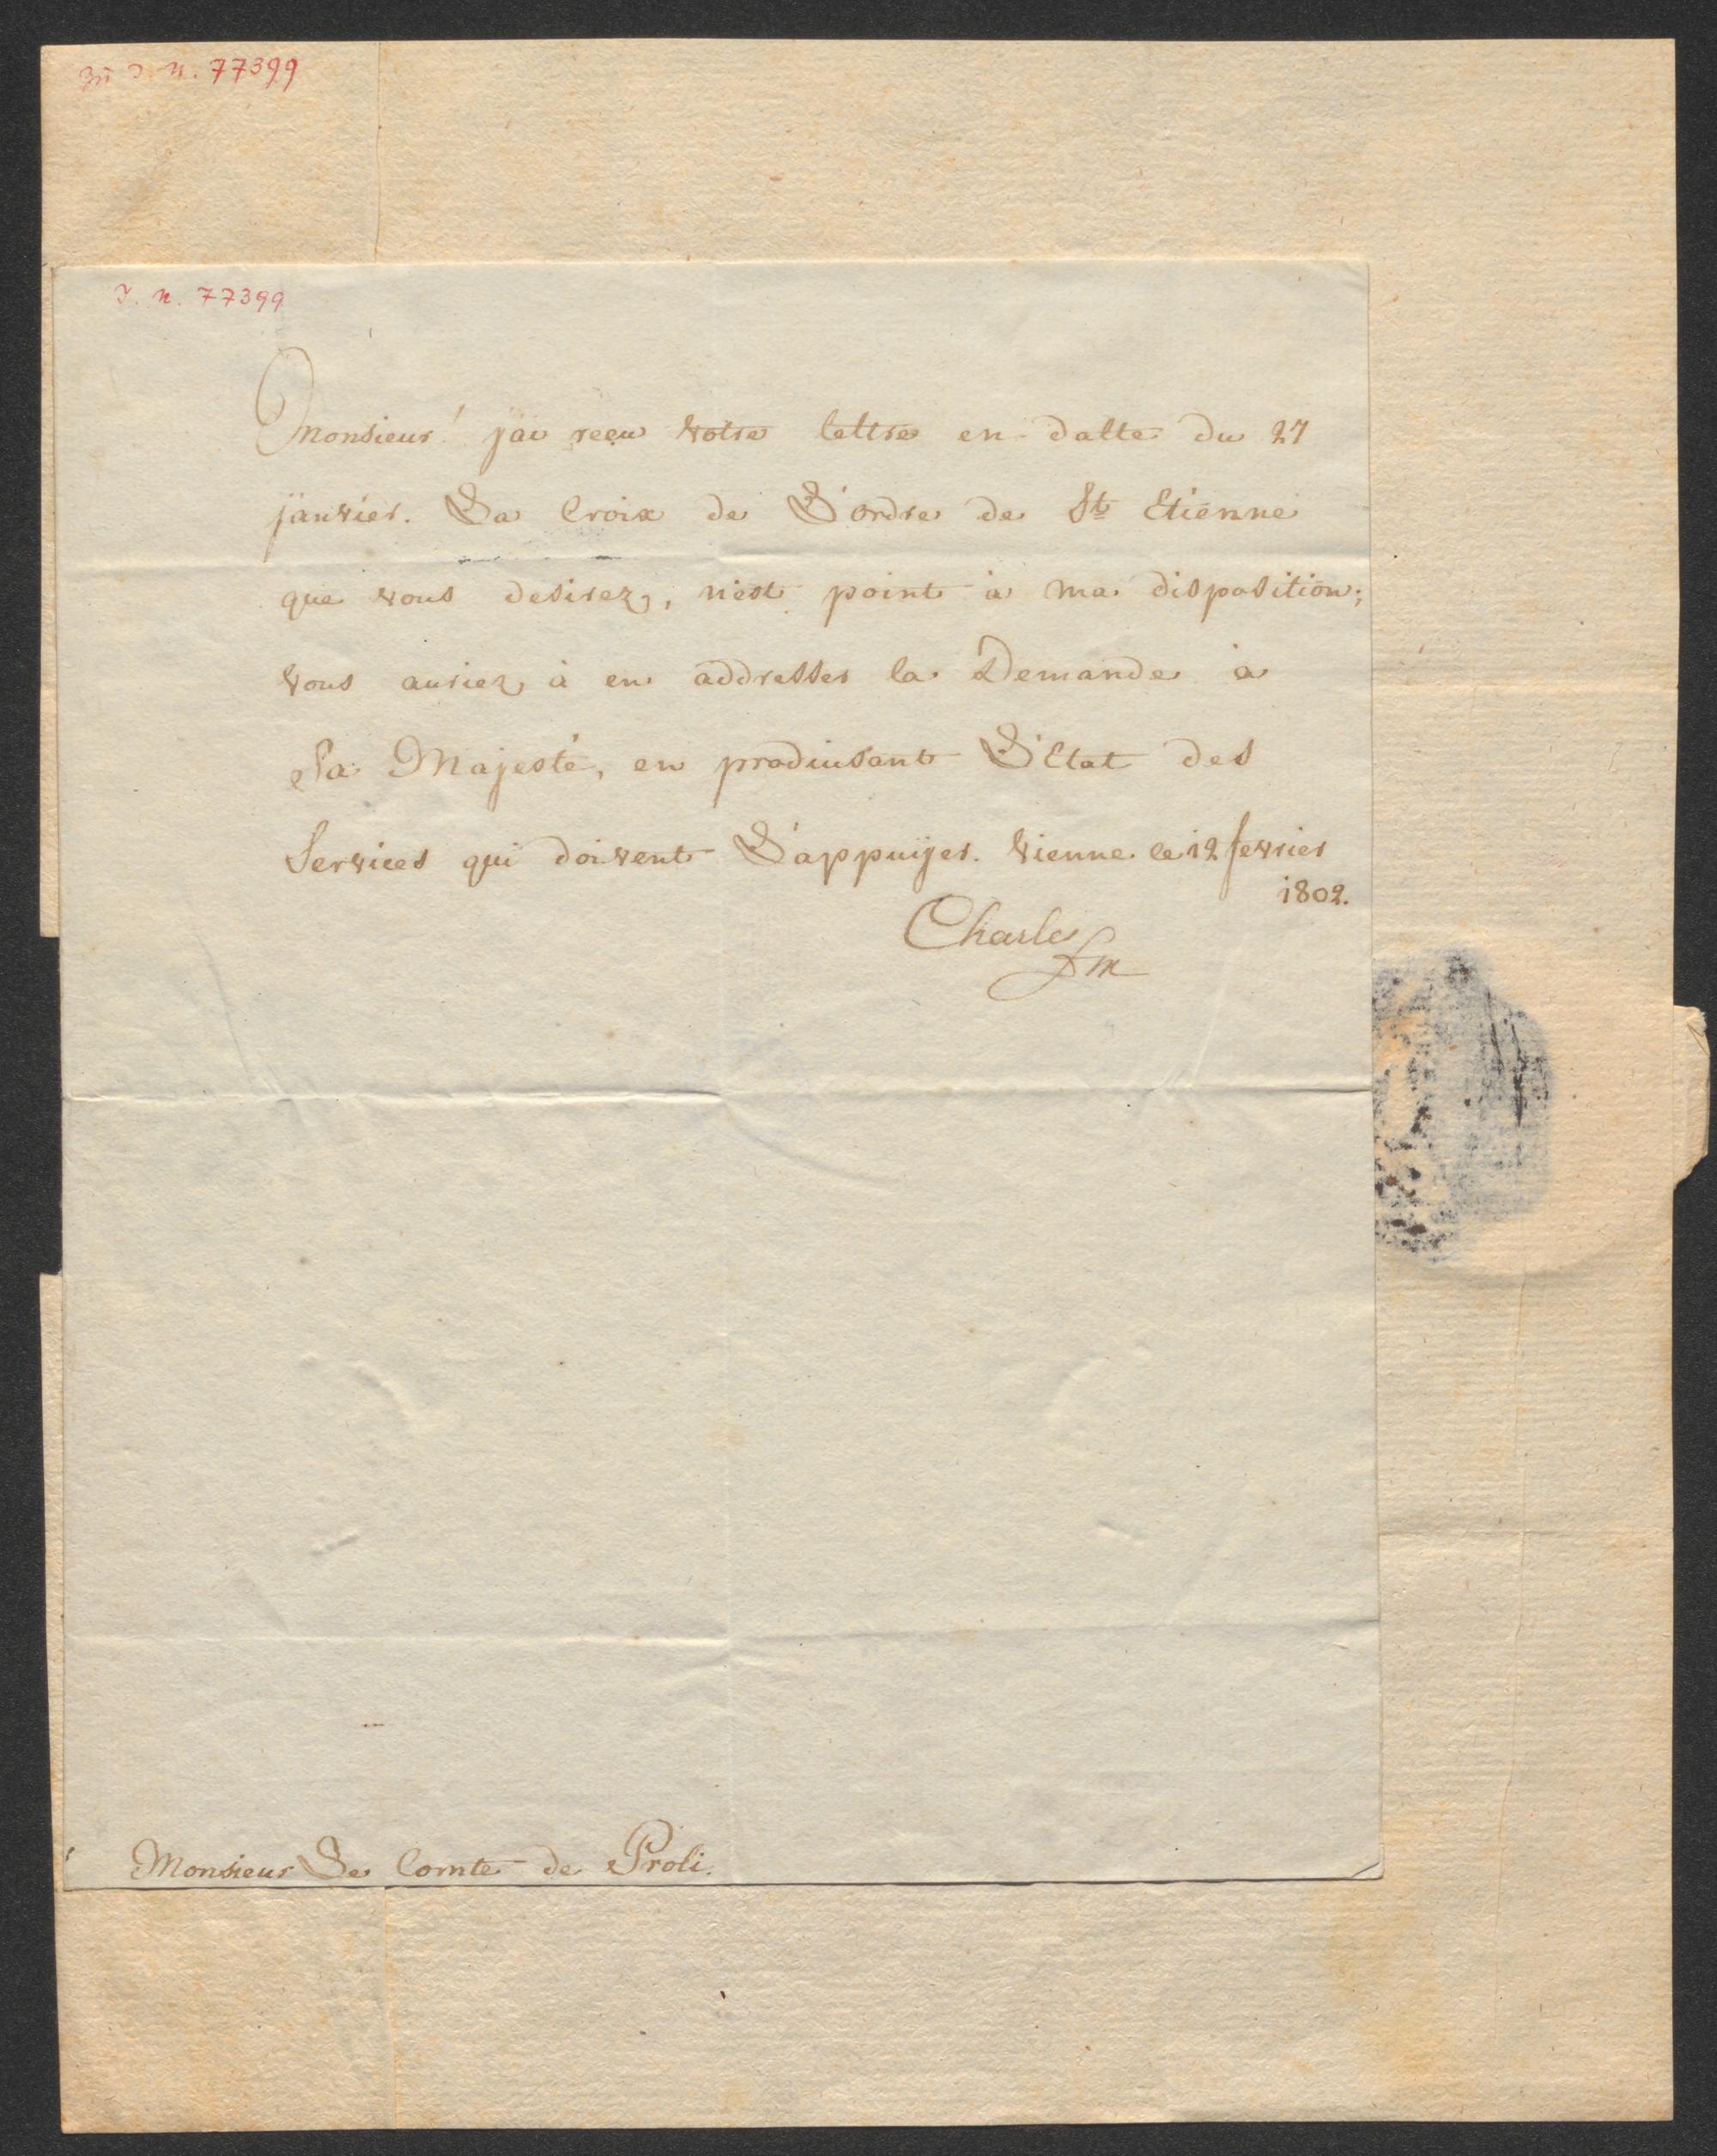 zu I. N. 77399
I. N. 77399
Monsieur! j'ai reçu votre lettre en datte du 27
janvier. La Croix de L'ordre de St Etienne
que vous desirez, n'est point à ma disposition;
vous auriez à en addresser la Demande à
Sa Majesté, en produisant L'Etat des
Services qui doivent L'appuÿer. Vienne le 12 fevrier
1802.
Charles
Monsieur Le Comte de Proli.